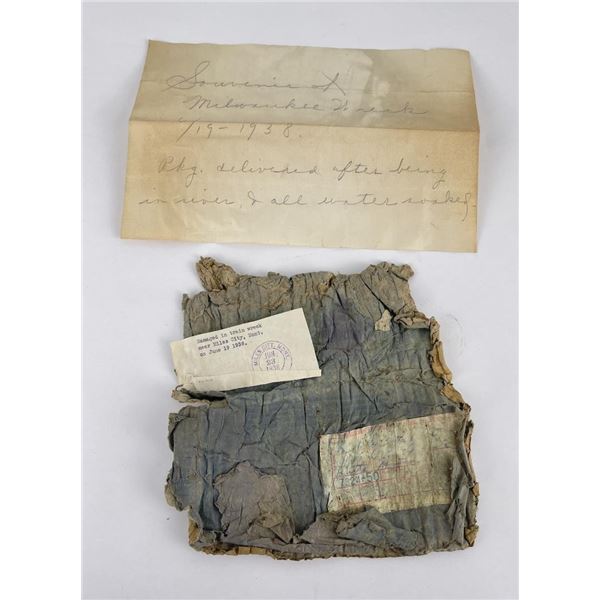 Souvenir of
Milwaukee Wreck
6/19-1938.
Pkg. delivered after being
in river, & all water soaked.
Damaged in train wreck
near Miles City, Mont.
on June 19 1938.
MILES CITY, MONT.
JUN
1938